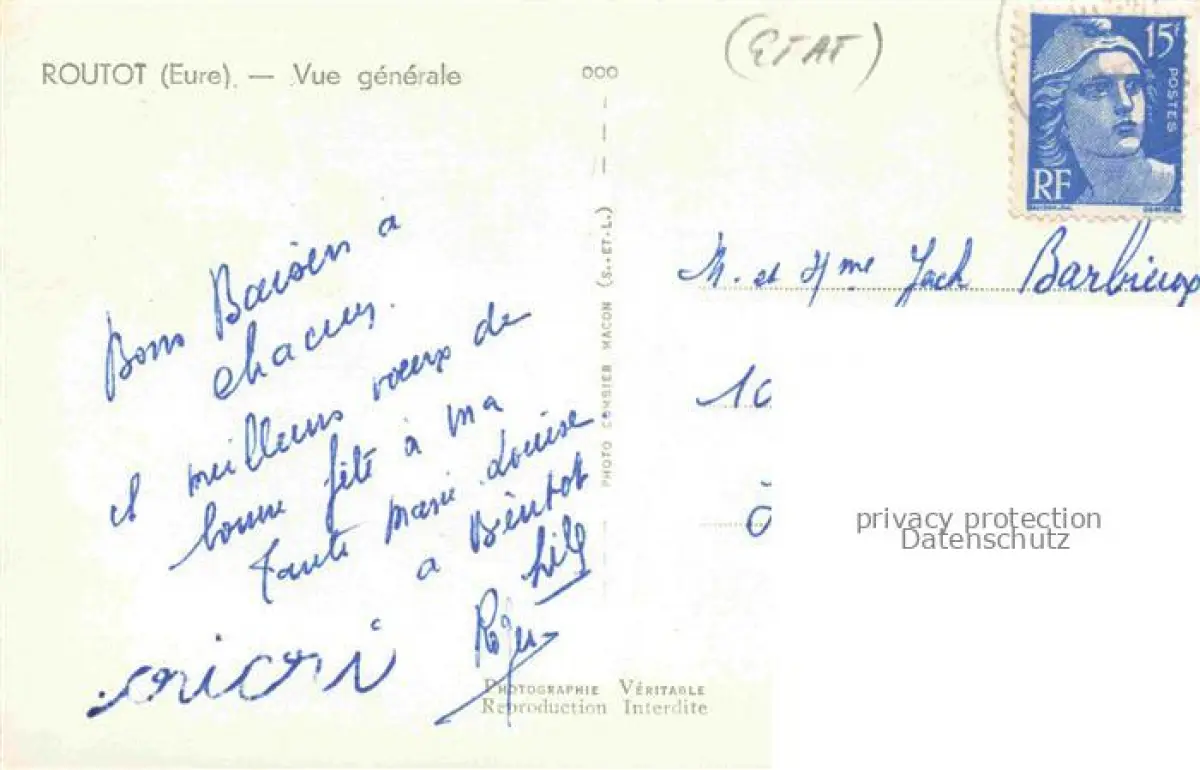 ROUTOT (Eure). — Vue générale
000
(ETAT)
15F
POSTES
RF
PHOTO COMBIER MACON (S.-ET-L.)
Bons Baisers à
chacuns.
et meilleurs vœux de
bonne fête à ma
tante Marie Louise
a Bientot
Roger
M. et Mme Jack Barbieux
10
privacy protection
Datenschutz
PHOTOGRAPHIE VÉRITABLE
Reproduction Interdite